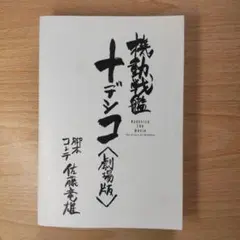 機動戦艦
ナデシコ
〈劇場版〉
NADESICO
THE
MOVIE
脚本
コンテ
佐藤竜雄